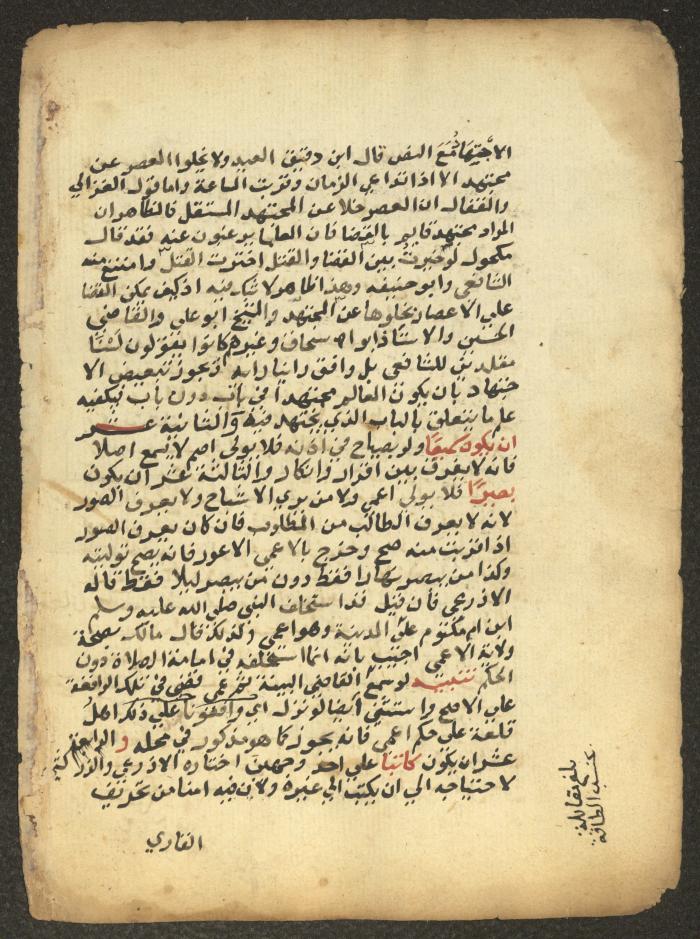 الاجتهاد مع النص قال ابن دقيق العيد ولا يخلوا العصر عن
مجتهد الا اذا تداعي الزمان وقربت الساعة واما قول الغزالي
والقفال ان العصر خلا عن المجتهد المستقل فالظاهر ان
المراد مجتهد قايم بالقضا فان العلما يرغبون عنه فقد قال
مكحول لو خيرت بين القضا والقتل اخترت القتل وامتنع منه
الشافعي وابو حنيفه وهذا ظاهر لا شك فيه اذ كيف يمكن القضا
علي الاعصار بخلوها عن المجتهد والشيخ ابو علي والقاضي
الحسين والاستاذ ابو اسحاق وغيرهم كانوا يقولون لسنا
مقلدين للشافعي بل وافق راينا رايه وتجوز تبعيض الا
جتهاد بان يكون العالم مجتهدا في باب دون باب فيكفيه
علم ما يتعلق بالباب الذي يجتهد فيه والثانية عشر
ان يكون سميعا ولو بصياح في اذنه فلا يولي اصم لا يسمع اصلا
فانه لا يفرق بين اقرار وانكار والثالثة عشر ان يكون
بصيرا فلا يولي اعمي ولا من يري الاشباح ولا يعرف الصور
لانه لا يعرف الطالب من المطلوب فان كان يعرف الصور
اذا قربت منه صح وخرج بالاعمي الاعور فانه يصح توليته
وكذا من يبصر نهارا فقط دون من يبصر ليلا فقط قاله
الاذرعي فان قيل قد استخلف النبي صلي الله عليه وسلم
ابن ام مكتوم علي المدينة وهو اعمي ولذلك قال مالك بصحة
ولاية الاعمي اجيب بانه انما استخلفه في امامة الصلاة دون
الحكم تنبيه لو سمع القاضي البينة ثم عمي قضي في تلك الواقعة
علي الاصح واستثني ايضا لو نزل اي وافقونا علي ذلك اهل
قلعة علي حكم اعمي فانه يجوز كما هو مذكور في محله والرابعة
عشر ان يكون كاتبا علي احد وجهين اختاره الاذرعي والزركشي
لاحتياجه الي ان يكتب الي غيره ولان فيه امنا من تحريف
القاري
بلغ مقابلة
بحسب الطاقة